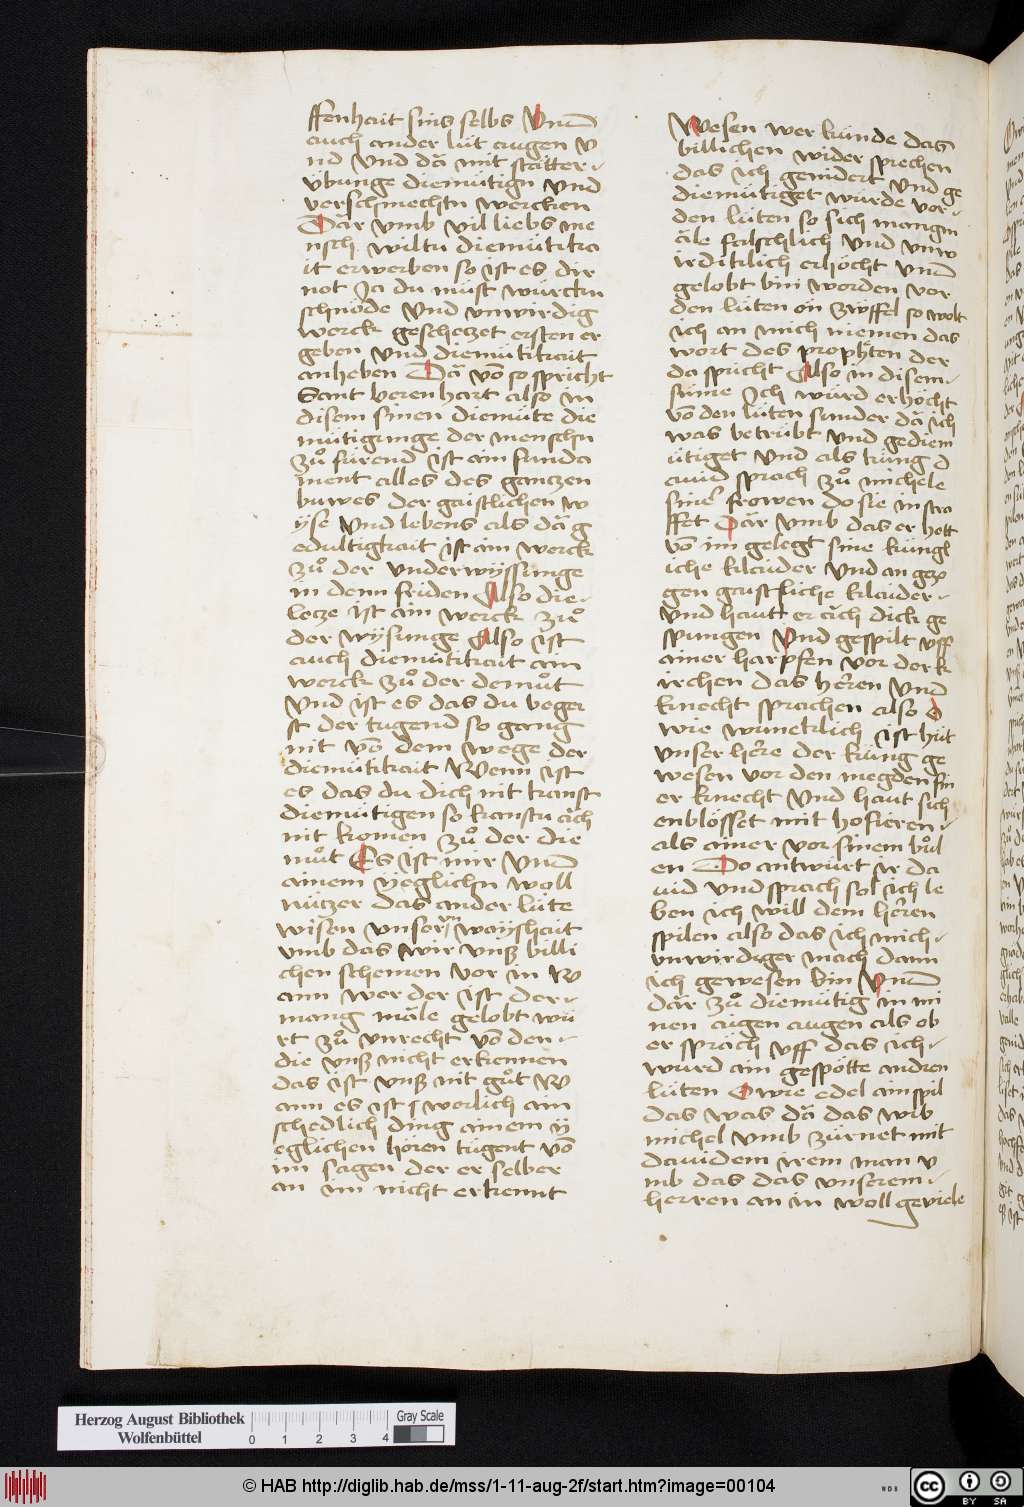 ffenhait sins selbs Vnd
auch ander lüt augen v
nd Vnd dā mit stätter
übunge diemütign Vnd
verschmechtn wercken
Dar vmb vil liebs me
nsch wiltu diemütikait
it erwerben so ist es dir
not Ja du müst würckn
schnöde Vnd vnwirdig
werck geschetzet ersten er
geben Vnd diemütikait
anheben Dā vō so spricht
Sant berenhart also in
disem sinen diemüte die
mütigunge der menschn
zuͦ fürend ist ain funda
ment alles des gantzen
buwes der gaistlichen w
yse Vnd lebens als dā g
edultigkait ist ain werck
zuͦ der vnderwyssunge
in denn friden Also die
letze ist ain werck zuͦ
der wysunge Also ist
auch diemütikait ain
werck zuͦ der demuͦt
Vnd ist es das du beger
st der tugend so gang
nit vō dem wege der
diemütikait Wenn ist
es das du dich nit kanst
diemütigen so kanstu āch
nit komen zuͦ der die
muͦt Es ist mir Vnd
ainem yeglichn woll
nützer das ander lüte
wisen vnser vn wayshait
vmb das wir vnß billi
chen schemen vor in W
ann wer der ist der
mang mäle gelobt wü
rt zuͦ vnrecht vō den
die vnß nicht erkennen
das ist vnß nit guͦt W
ann es ist werlich ain
schedlich ding ainem y
eglichen hören tügent vō
im sagen der er selber
an im nicht erkennt
Wesen wer künde das
billichen wider sprechen
das ich genidert Vnd ge
diemütiget würde vor
den lüten so sich mangin
äle falschlich Vnd vnw
irdiklich erhöcht Vnd
gelobt bin worden vor
den lüten ön zwyffel so wolt
ich an mich niemen das
wort des prophetten der
da spricht Also in disem
sinne Ich würd erhöcht
vō den lüten sunder dā ich
was betrübt Vnd gediem
ütiget Vnd als küng d
auid sprach zuͦ michele
siner frowen do sie in stra
ffet Dar vmb das er hett
vō im gelegt sine küngl
iche klaider Vnd an gezo
gen gaistliche klaider
Vnd hautt er āch dick ge
spungen Vnd gespilt vff
ainer harpfen vor der k
irchen das heren Vnd
knecht sprachen also O
wie wunetrlich ist hüt
vnser here der küng ge
wesen vor den megden sin
er knecht Vnd haut sich
enblösset mit hofieren
als ainer vor sinem buͦl
en Do antwürt ir da
uid Vnd sprach sol ich le
ben ich will dem heren
spilen also das ich mich
vnwirdiger mach dann
ich gewesen bin Vnd
dār zuͦ diemütig in mi
nen aigen augen als ob
er spräch vff das ich
wurd ain gespötte andren
lüten O wie edel ain spil
das was dā das wib
michel vmb zürnet mit
dauidem irem man v
mb das das vnserem
herren an im woll geviele
Herzog August Bibliothek
Wolfenbüttel
0 1 2 3 4
Gray Scale
© HAB http://diglib.hab.de/mss/1-11-aug-2f/start.htm?image=00104
WDB
cc BY SA